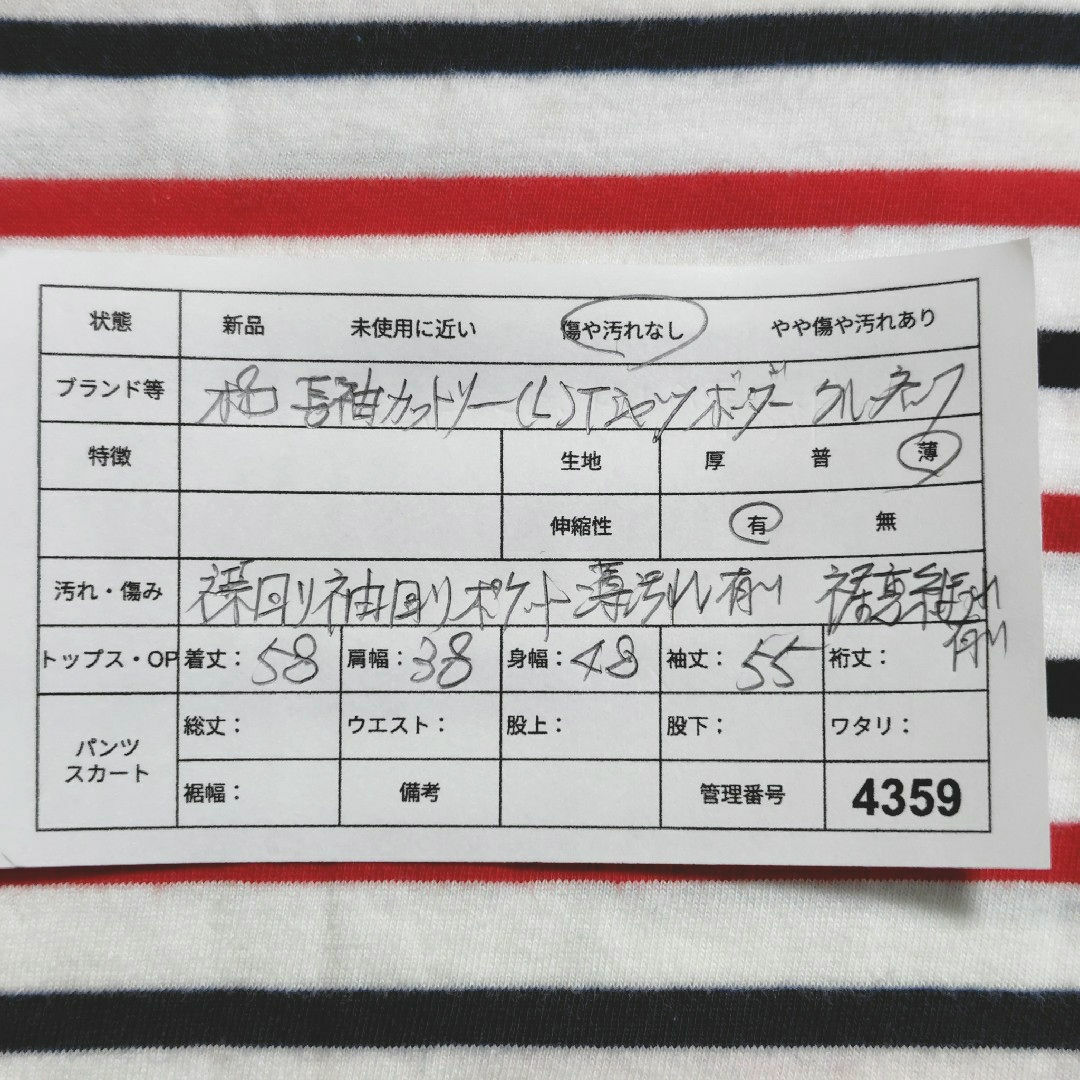 状態 新品 未使用に近い 傷や汚れなし やや傷や汚れあり
ブランド等 長袖カットソー(L)Tシャツ ボーダー クルーネック
特徴 生地 厚 普 薄
伸縮性 有 無
汚れ・傷み 襟回り袖回りポケット薄汚れ有り 裾裏
有り
トップス・OP 着丈：58 肩幅：38 身幅：48 袖丈：55 裄丈：
パンツ スカート
総丈： ウエスト： 股上： 股下： ワタリ：
裾幅： 備考 管理番号 4359